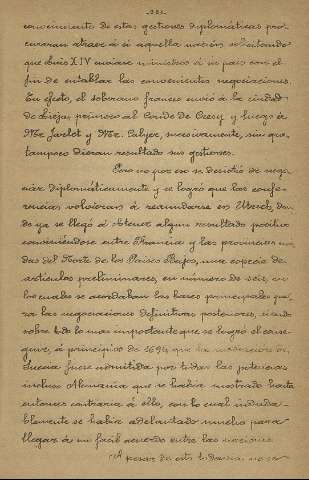 conocimiento de estas gestiones diplomáticas pro-
curaran atraer á si aquella nación solicitando
que Luis XIV enviase ministros á su país con el
fin de entablar las convenientes negociaciones.
En efecto, el soberano francés envió á la ciudad
de Lieja, primero al Conde de Crecy y luego á
Mr. Jarlot y Mr. Callyer, sucesivamente, sin que
tampoco dieran resultado sus gestiones.
Pero no por eso se desistió de nego-
ciar diplomáticamente y se logró que las confe-
rencias volvieran á reanudarse en Utrech, don-
de ya se llegó á obtener algun resultado positivo
conviniéndose entre Francia y las provincias uni-
das del Norte de los Países Bajos, una especie de
artículos preliminares, en número de seis, en
los cuales se acordaban las bases primordiales pa-
ra las negociaciones definitivas posteriores, siendo
sobre todo lo mas importante que se logró el conse-
guir, á principios de 1694, que
Suecia fuese admitida por todas las potencias
incluso Alemania que se había mostrado hasta
entonces contraria á ello, con lo cual induda-
blemente se había adelantado mucho para
llegar á un facil acuerdo entre las naciones
A pesar de esto, no se